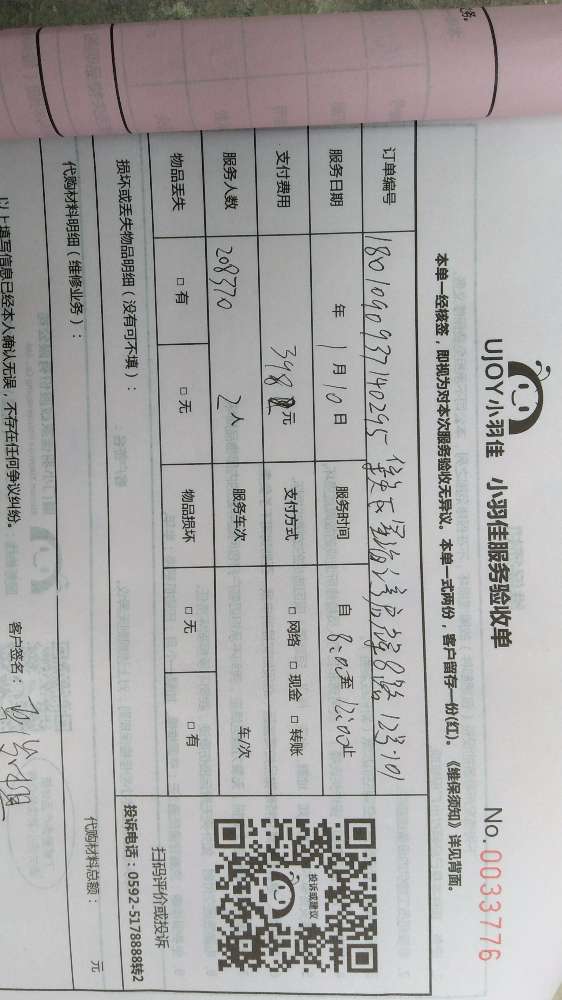 UJOY小羽佳 小羽佳服务验收单
No. 0033776
本单一经核签，即视为对本次服务验收无异议。本单一式两份，客户留存一份(红)。《维保须知》详见背面。
订单编号 1801090937140295
服务日期 年 1月10日 服务时间 自 8:00至 12:00止
支付费用 398元 支付方式 □网络 □现金 □转账
服务人数 208370 2人 服务车次 车/次
物品丢失 □有 □无 物品损坏 □无 □有
投诉或建议
扫码评价或投诉
投诉电话：0592-5178888转2
损坏或丢失物品明细（没有可不填）：
代购材料明细（维修业务）： 代购材料总额： 元
以上填写信息已经本人确认无误，不存在任何争议纠纷。 客户签名：